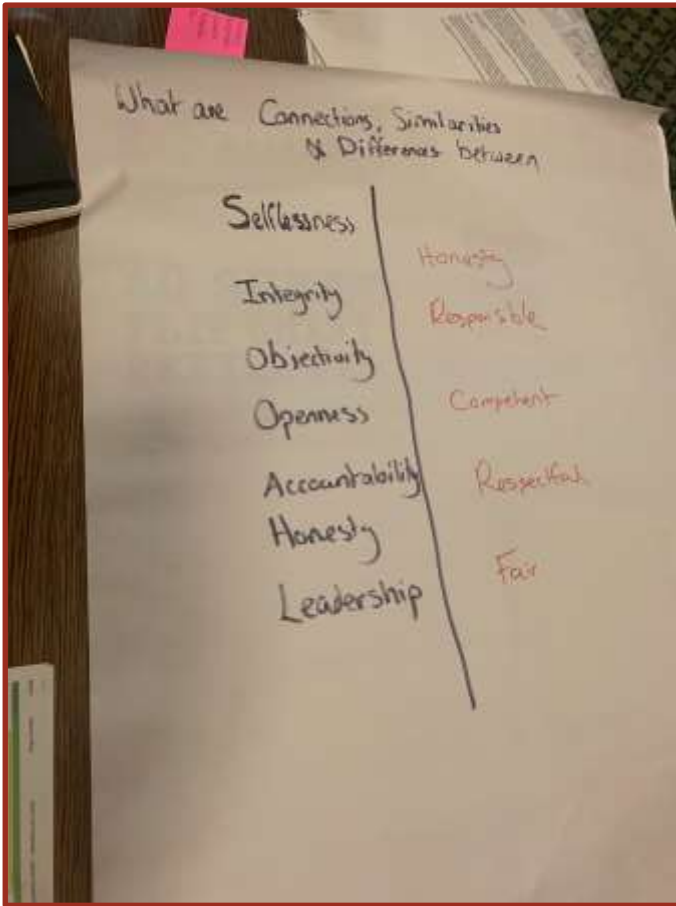 What are Connections, Similarities
& Differences between
Selflessness
Integrity
Objectivity
Openness
Accountability
Honesty
Leadership
Honesty
Responsible
Competent
Respectful
Fair